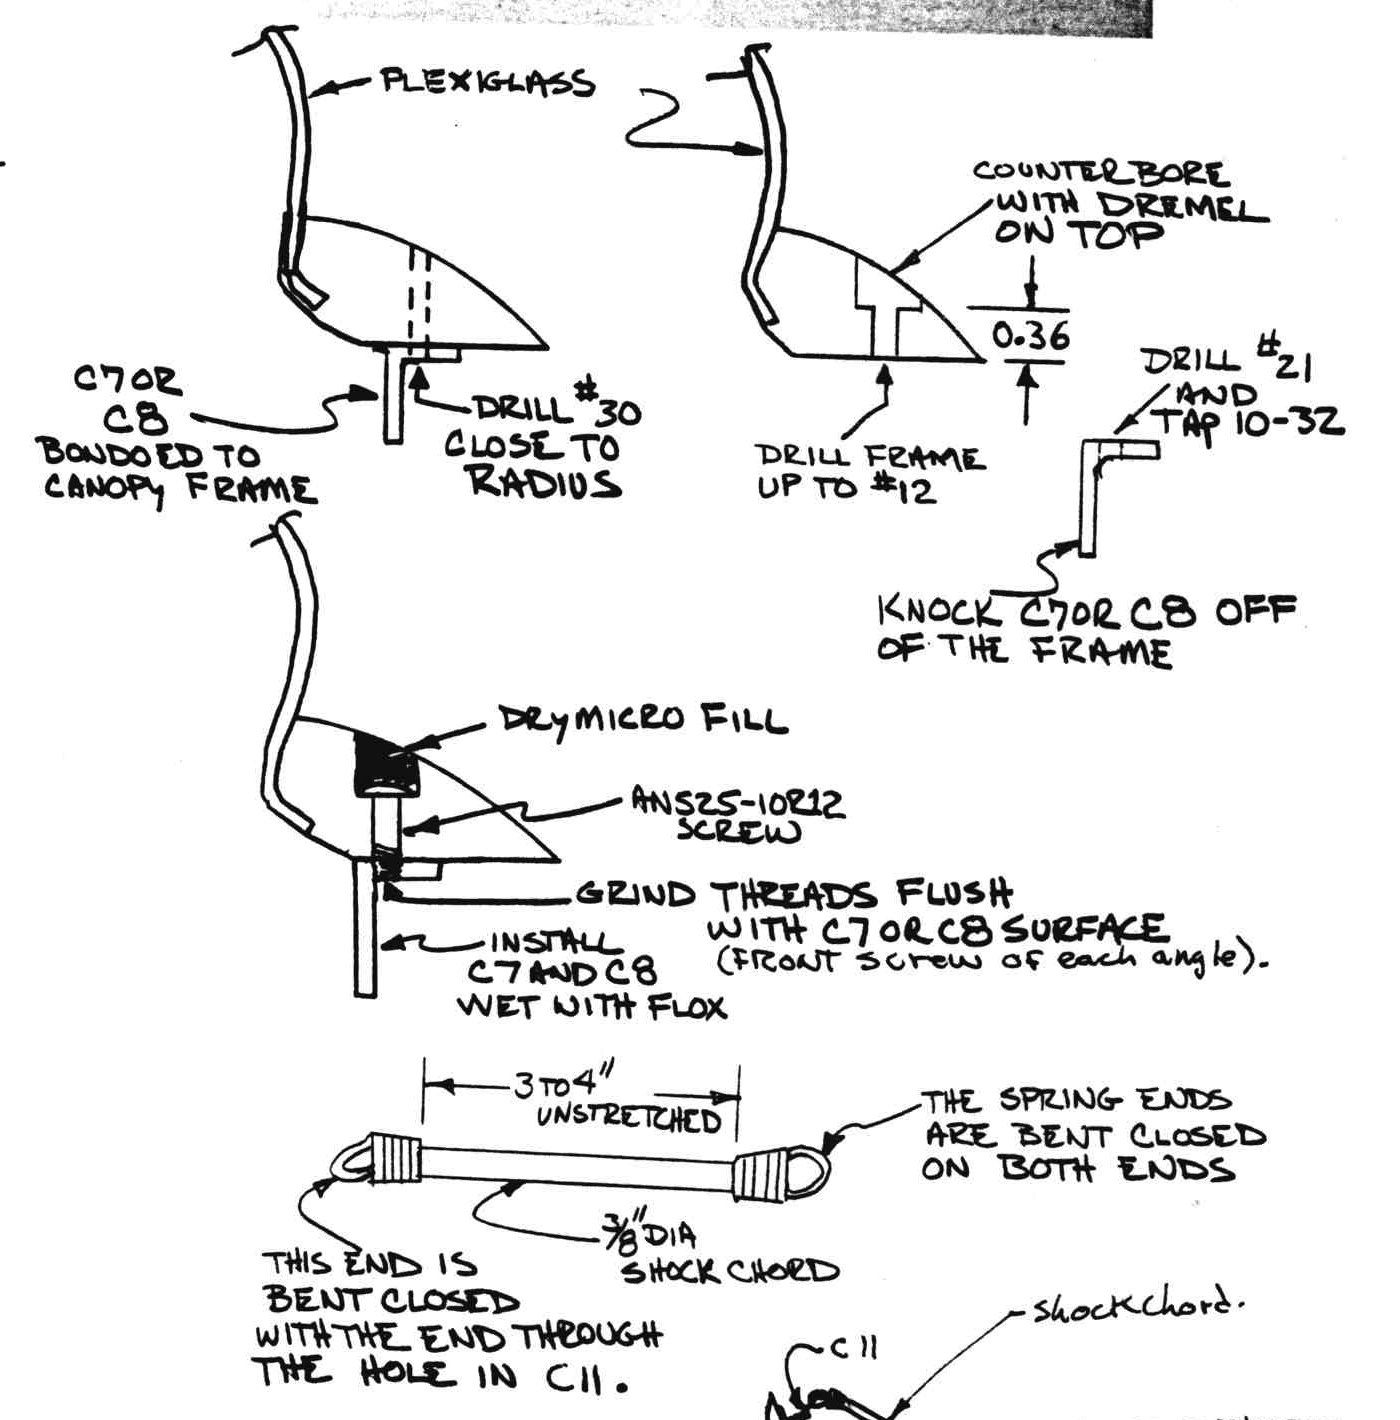 PLEXIGLASS
COUNTERBORE
WITH DREMEL
ON TOP
0.36
C7 OR
C8
BONDOED TO
CANOPY FRAME
DRILL #30
CLOSE TO
RADIUS
DRILL FRAME
UP TO #12
DRILL #21
AND
TAP 10-32
KNOCK C7 OR C8 OFF
OF THE FRAME
DRY MICRO FILL
AN525-10R12
SCREW
GRIND THREADS FLUSH
WITH C7 OR C8 SURFACE
(FRONT screw of each angle).
INSTALL
C7 AND C8
WET WITH FLOX
3 TO 4"
UNSTRETCHED
THE SPRING ENDS
ARE BENT CLOSED
ON BOTH ENDS
3/8" DIA
SHOCK CHORD
THIS END IS
BENT CLOSED
WITH THE END THROUGH
THE HOLE IN C11.
shock chord.
C11